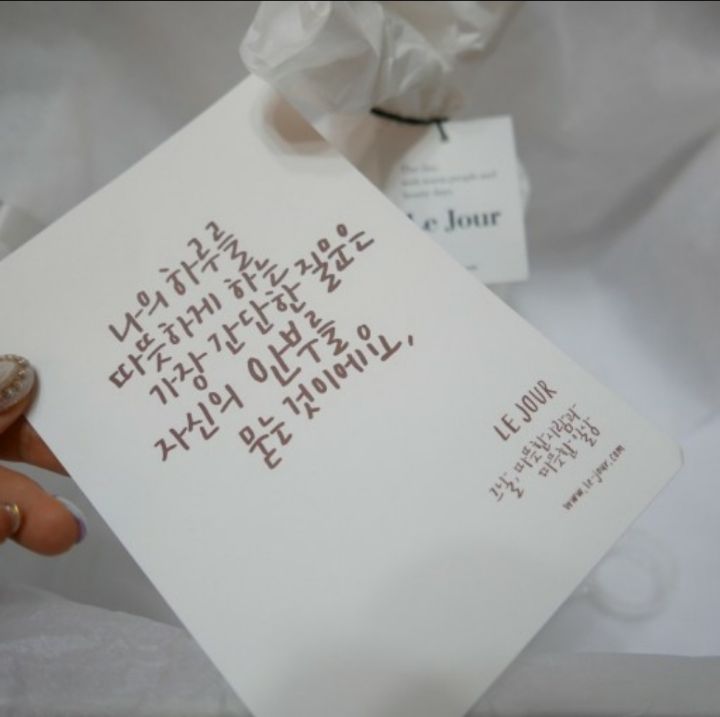 나의 하루를
따뜻하게 하는 질문은
가장 간단한
자신의 안부를
묻는 것이에요,
LE JOUR
그날, 따뜻한 사람과
따뜻한 일상
www.le-jour.com
Le Jour